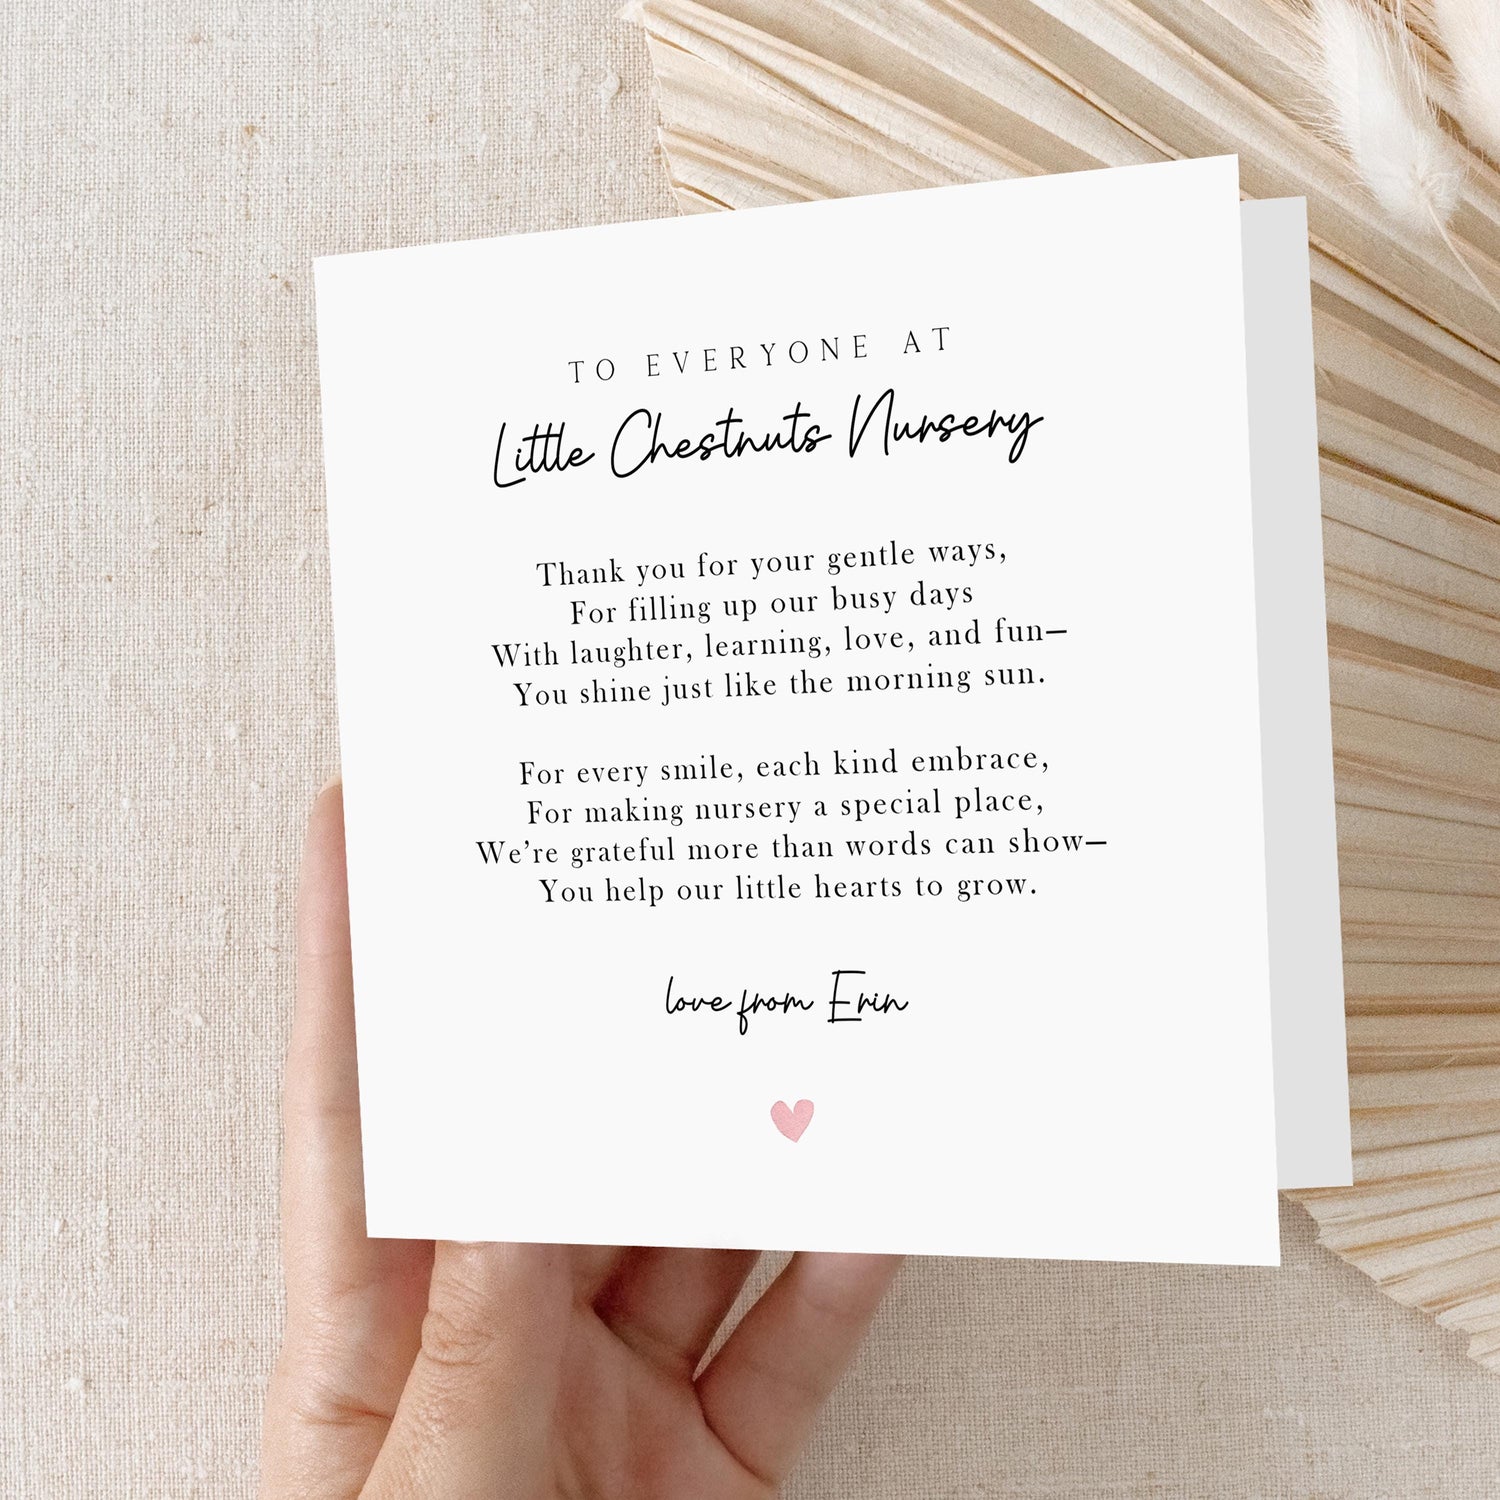 TO EVERYONE AT
Little Chestnuts Nursery
Thank you for your gentle ways,
For filling up our busy days
With laughter, learning, love, and fun—
You shine just like the morning sun.
For every smile, each kind embrace,
For making nursery a special place,
We’re grateful more than words can show—
You help our little hearts to grow.
love from Erin